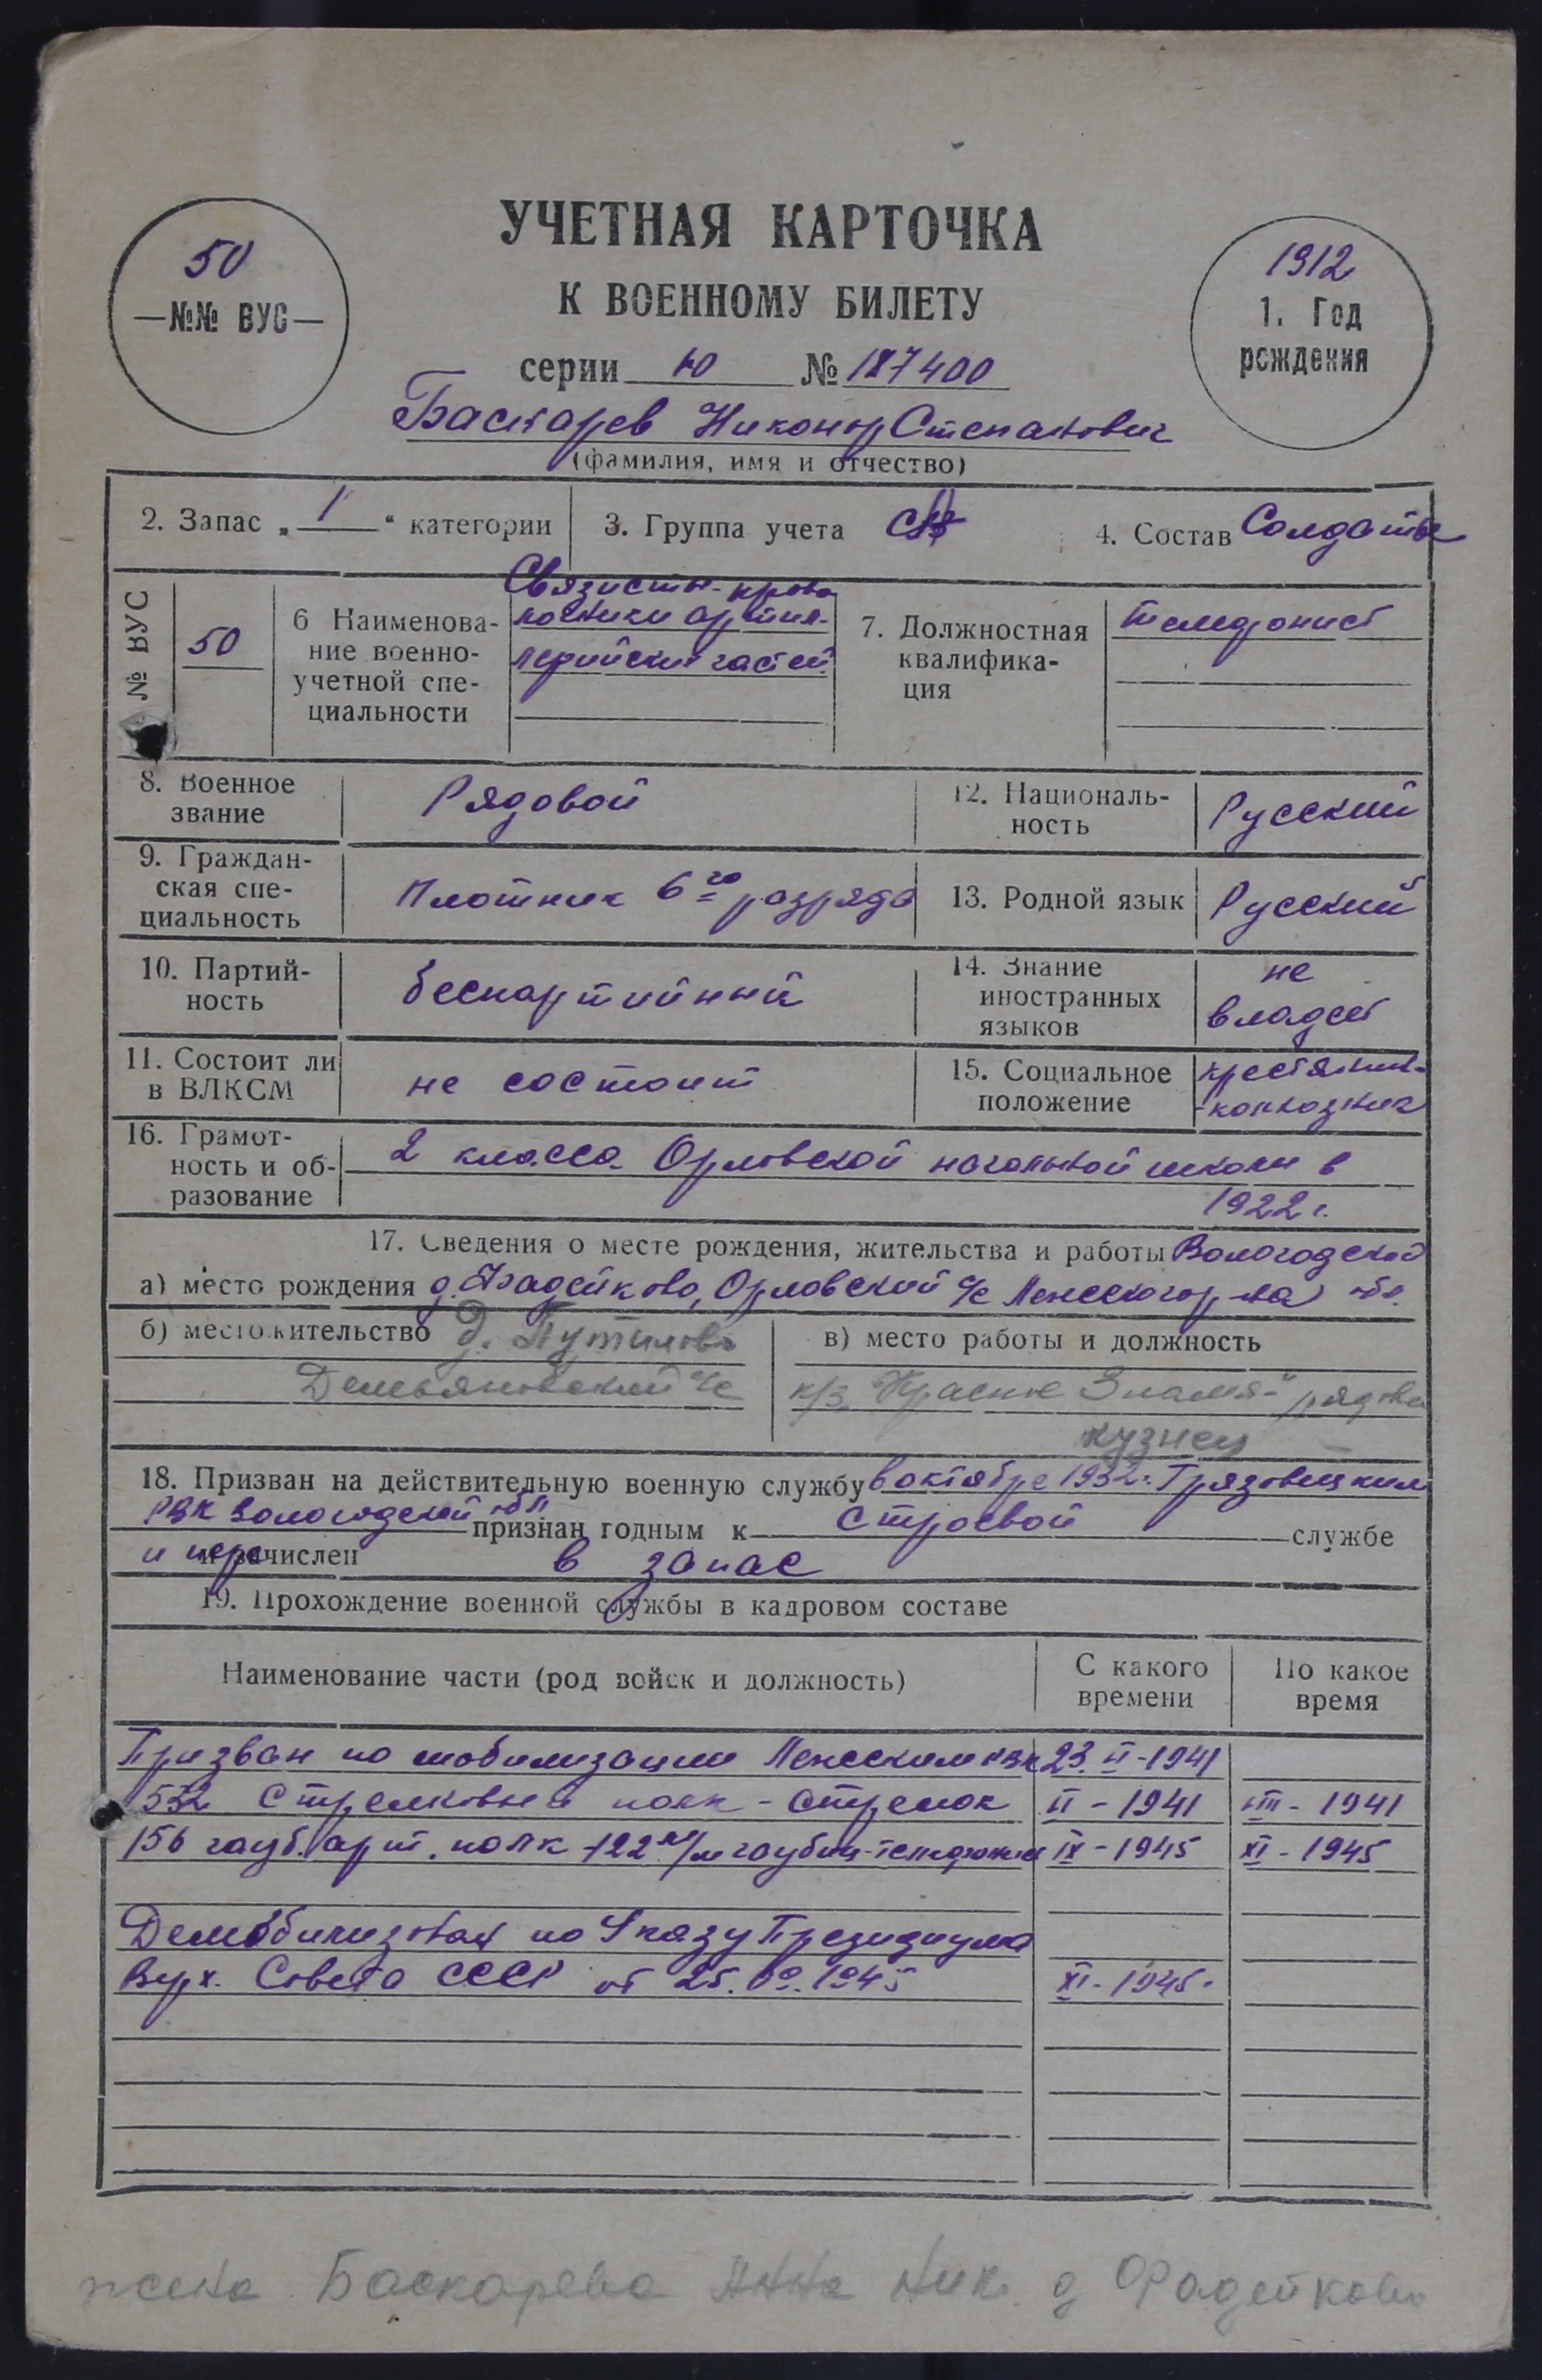 УЧЕТНАЯ КАРТОЧКА
К ВОЕННОМУ БИЛЕТУ
50
—№№ ВУС—
1912
1. Год
рождения
серии Ю № 187400
Баскарев Никонор Степанович
(фамилия, имя и отчество)
2. Запас „ 1 “ категории
3. Группа учета СА
4. Состав Солдаты
№ ВУС
50
6 Наименова-
ние военно-
учетной спе-
циальности
Связисты-прово
лочники артил-
лерийских частей
7. Должностная
квалифика-
ция
телефонист
8. Военное
звание
Рядовой
12. Националь-
ность
Русский
9. Граждан-
ская спе-
циальность
Плотник 6го разряда
13. Родной язык
Русский
10. Партий-
ность
беспартийный
14. Знание
иностранных
языков
не
владеет
11. Состоит ли
в ВЛКСМ
не состоит
15. Социальное
положение
крестянин-
-колхозник
16. Грамот-
ность и об-
разование
2 класса Орловской начальной школы в
1922 г.
17. Сведения о месте рождения, жительства и работы Вологодской
а) место рождения д. Фадейково, Орловский с/с Лежского р-на обл.
б) место жительство д. Путилово
Демьяновский с/с
в) место работы и должность
к/з „Красное Знамя“ рядовой
кузнец
18. Призван на действительную военную службу в октябре 1932 г. Грязовецким
РВК Вологодской обл. признан годным к строевой службе
и пере зачислен в запас
19. Прохождение военной службы в кадровом составе
Наименование части (род войск и должность)
С какого
времени
По какое
время
Призван по мобилизации Лежским РВК 23.VI-1941
532 Стрелковый полк - стрелок VI - 1941 VIII - 1941
156 гауб. арт. полк - 122 м/м гаубиц - телефонист IX - 1945 XI - 1945
Демобилизован по Указу Президиума
Верх. Совета СССР от 25.09.1945 XI - 1945.
жена Баскарева Анна Ник. д Фадейково